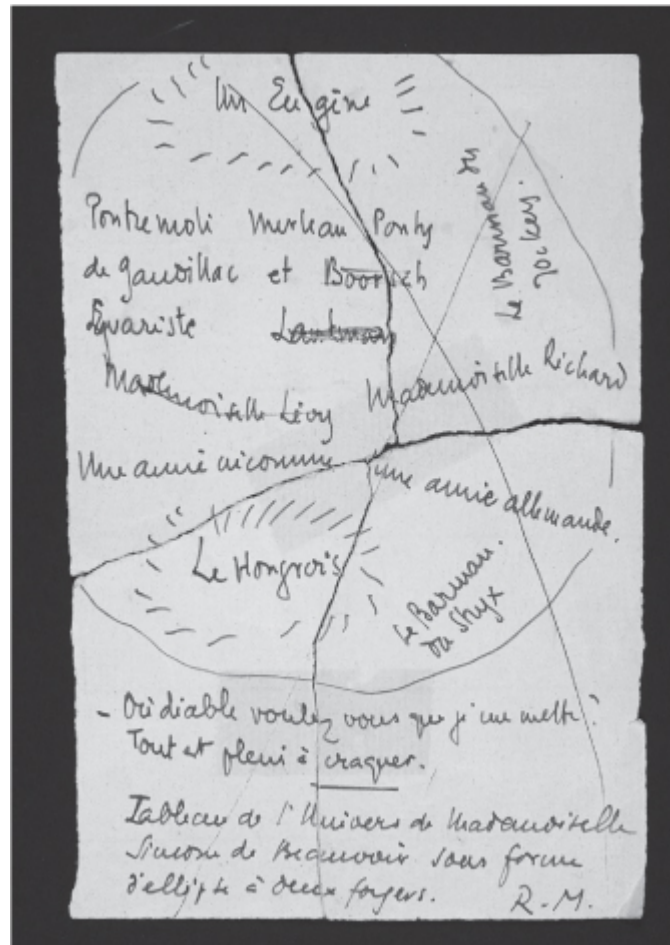 Un Eugène
Le Barman du
Jockey.
Pontremoli Merleau Ponty
de Gandillac et Boorsch
Évariste Lautman
Mademoiselle Lévy
Mademoiselle Richard
Une amie inconnue
une amie allemande.
Le Hongrois
Le Barman
du Styx
– Où diable voulez vous que je me mette?
Tout est plein à craquer.
Tableau de l'Univers de Mademoiselle
Simone de Beauvoir sous forme
d'ellipse à deux foyers.
R-M.